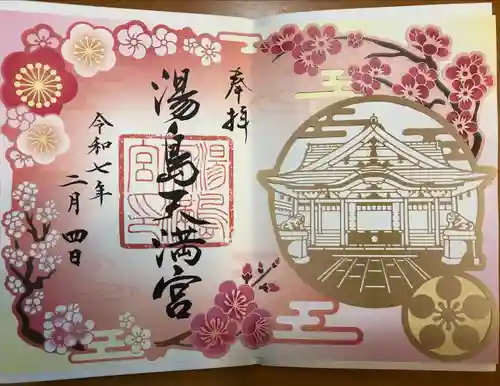 奉拝
湯島天満宮
湯島
宮印
令和七年
二月四日